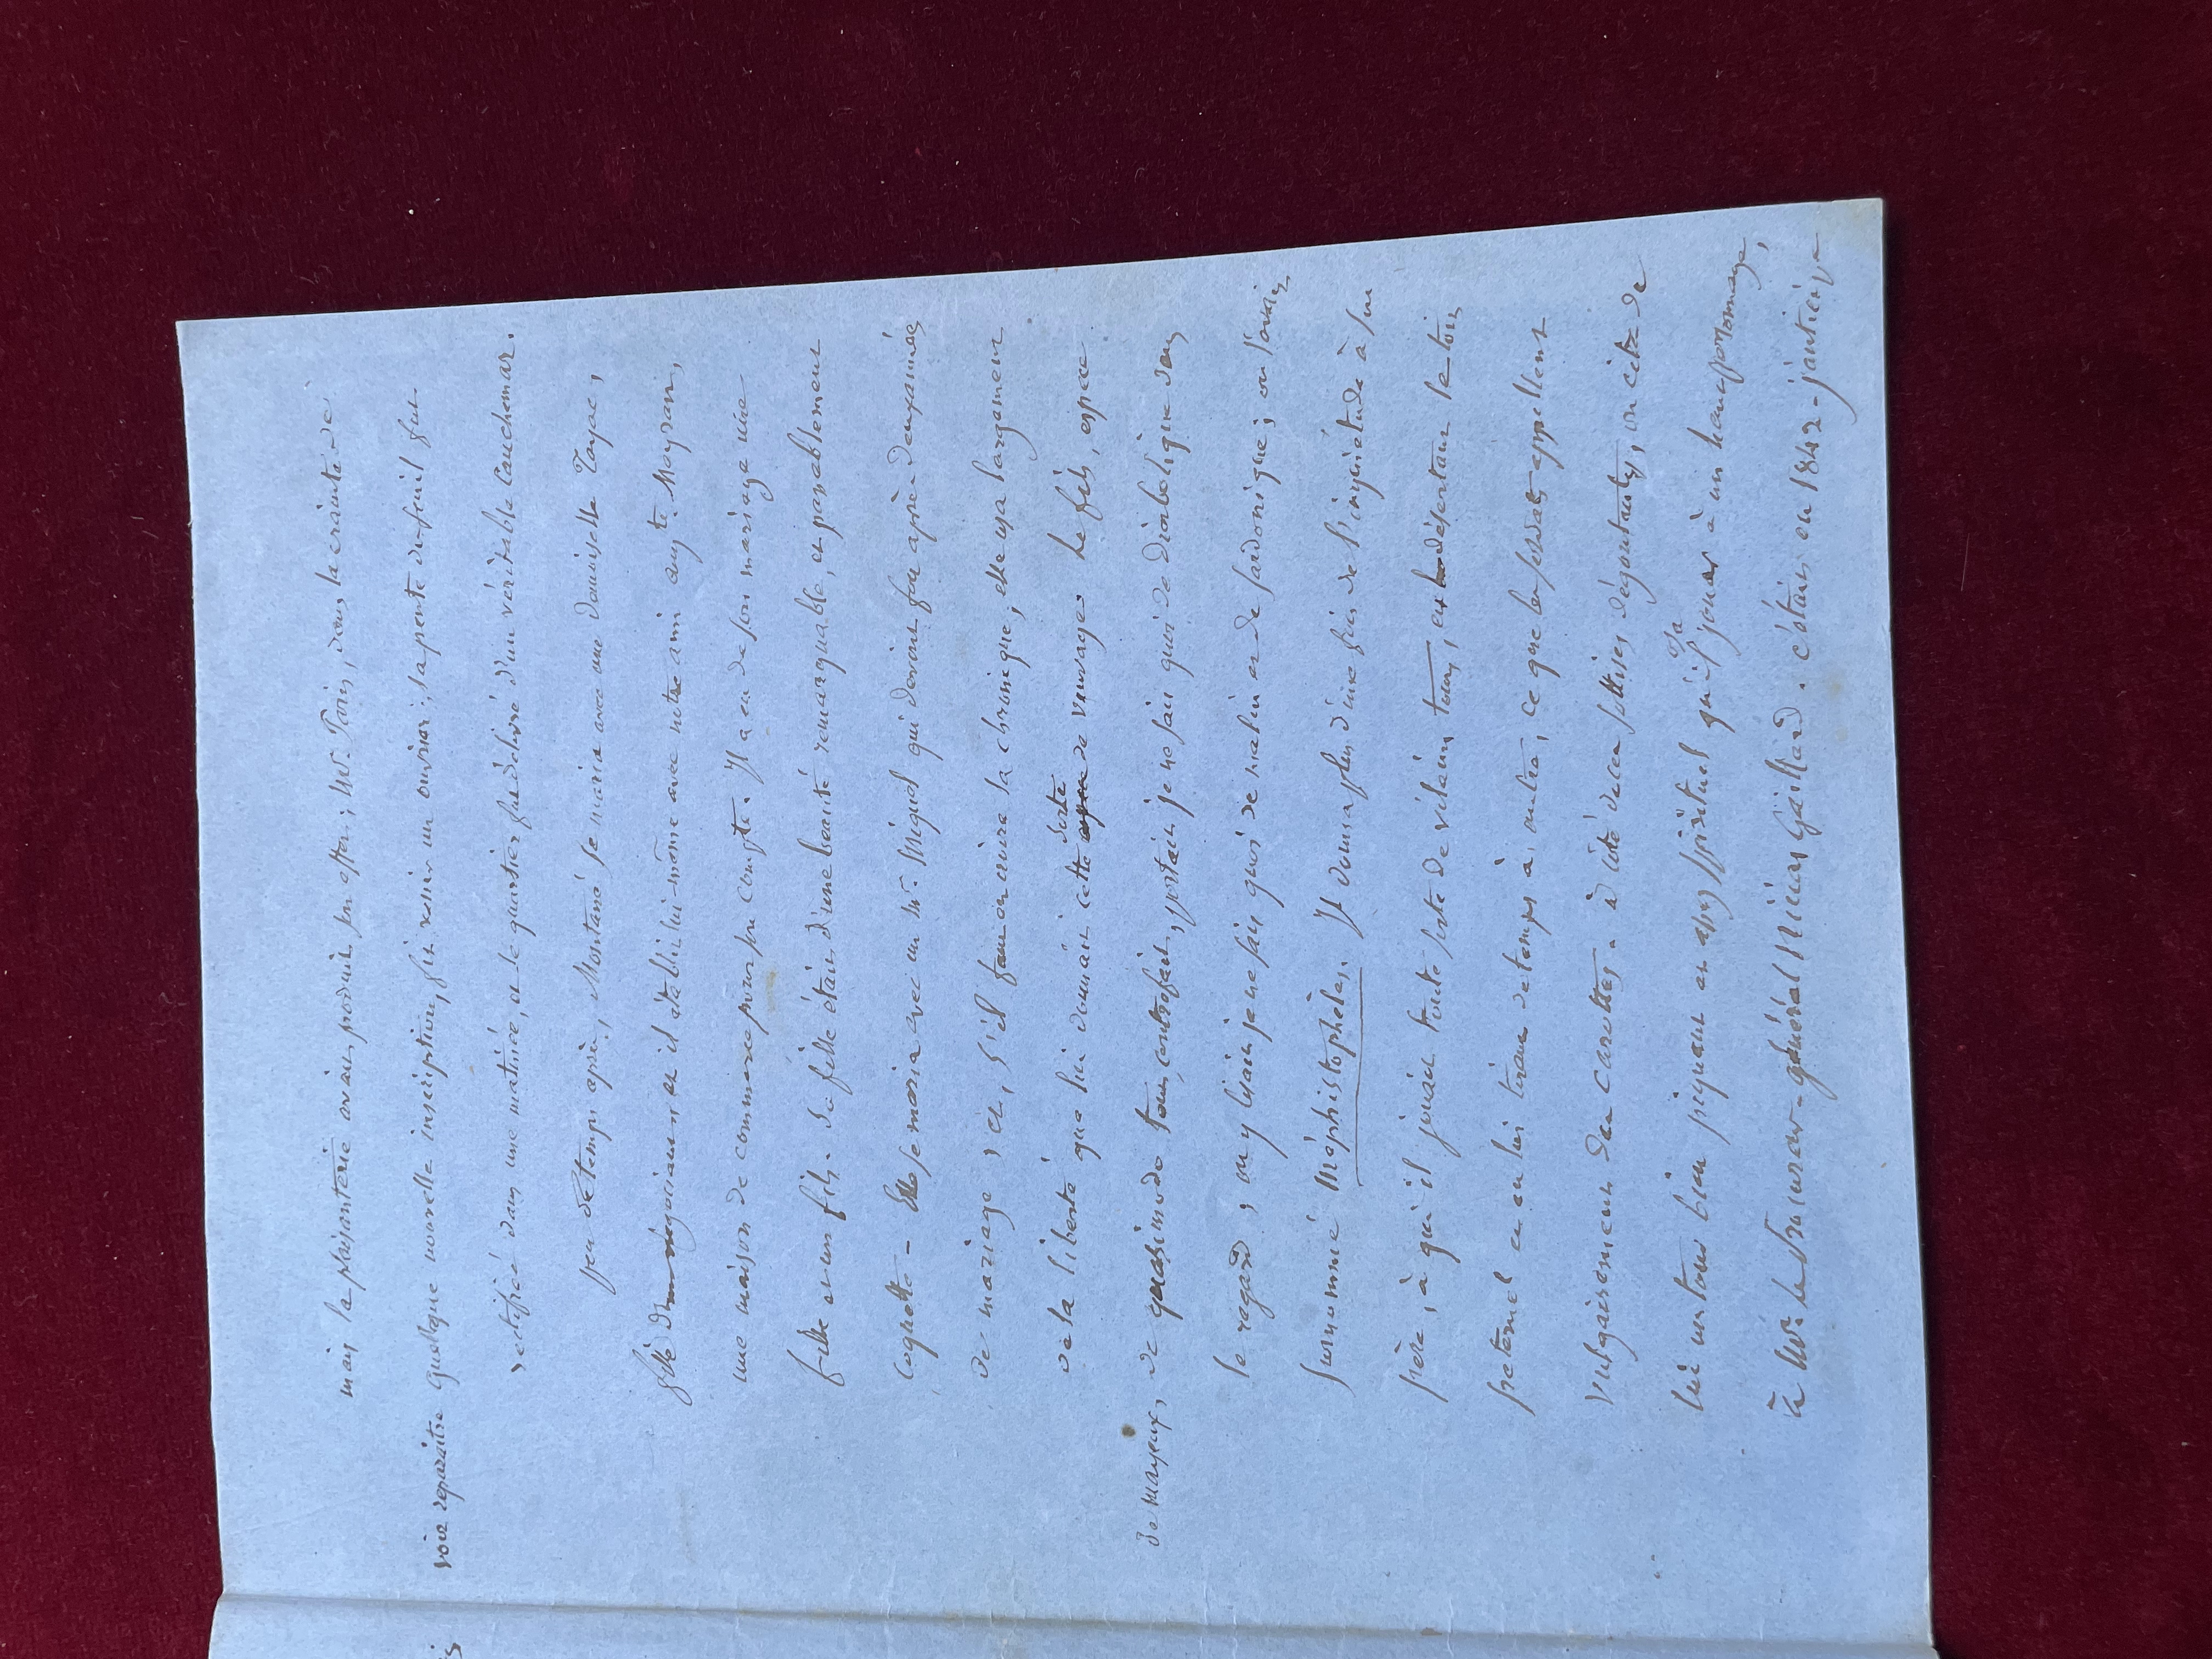 mais la plaisanterie avait produit son effet ; Mr. Paris, dans la crainte de
voir reparaître quelque nouvelle inscription, fit venir un ouvrier ; la porte du fenil fut
rectifiée dans une matinée, et le quartier fut délivré d'un véritable cauchemar.
peu de temps après, Montané se maria avec une demoiselle Tayac,
fille d'un négociant et il établit lui-même avec notre ami augte. Mayran,
une maison de commerce pour son compte. Il a eu de son mariage une
fille et un fils. Sa fille était d'une beauté remarquable, et passablement
coquette - Elle se maria avec un Mr. Miquel qui devint fou après deux années
de mariage ; et, s'il faut en croire la chronique, elle usa largement
de la liberté que lui donnait cette espèce sorte de veuvage. Le fils, espèce
de Mayeux, de quasimodo tout contrefait, portait je ne sais quoi de diabolique dans
le regard ; on y lisait je ne sais quoi de malin et de sardonique ; on l'avait
surnommé Méphistophélès. Il donna plus d'une fois de l'inquiétude à son
père, à qui il jouait toute sorte de vilains tours, en désertant le toit
paternel et en lui tirant de temps à autre, ce que les soldats appellent
vulgairement des carottes. à côté de ces sottises dégoutantes, on cite de
lui un tour bien piquant et assez spirituel qu'il osa jouer à un haut personnage,
à Mr. le Procureur-général Nicias Gaillard. C'était en 1842 - j'antici